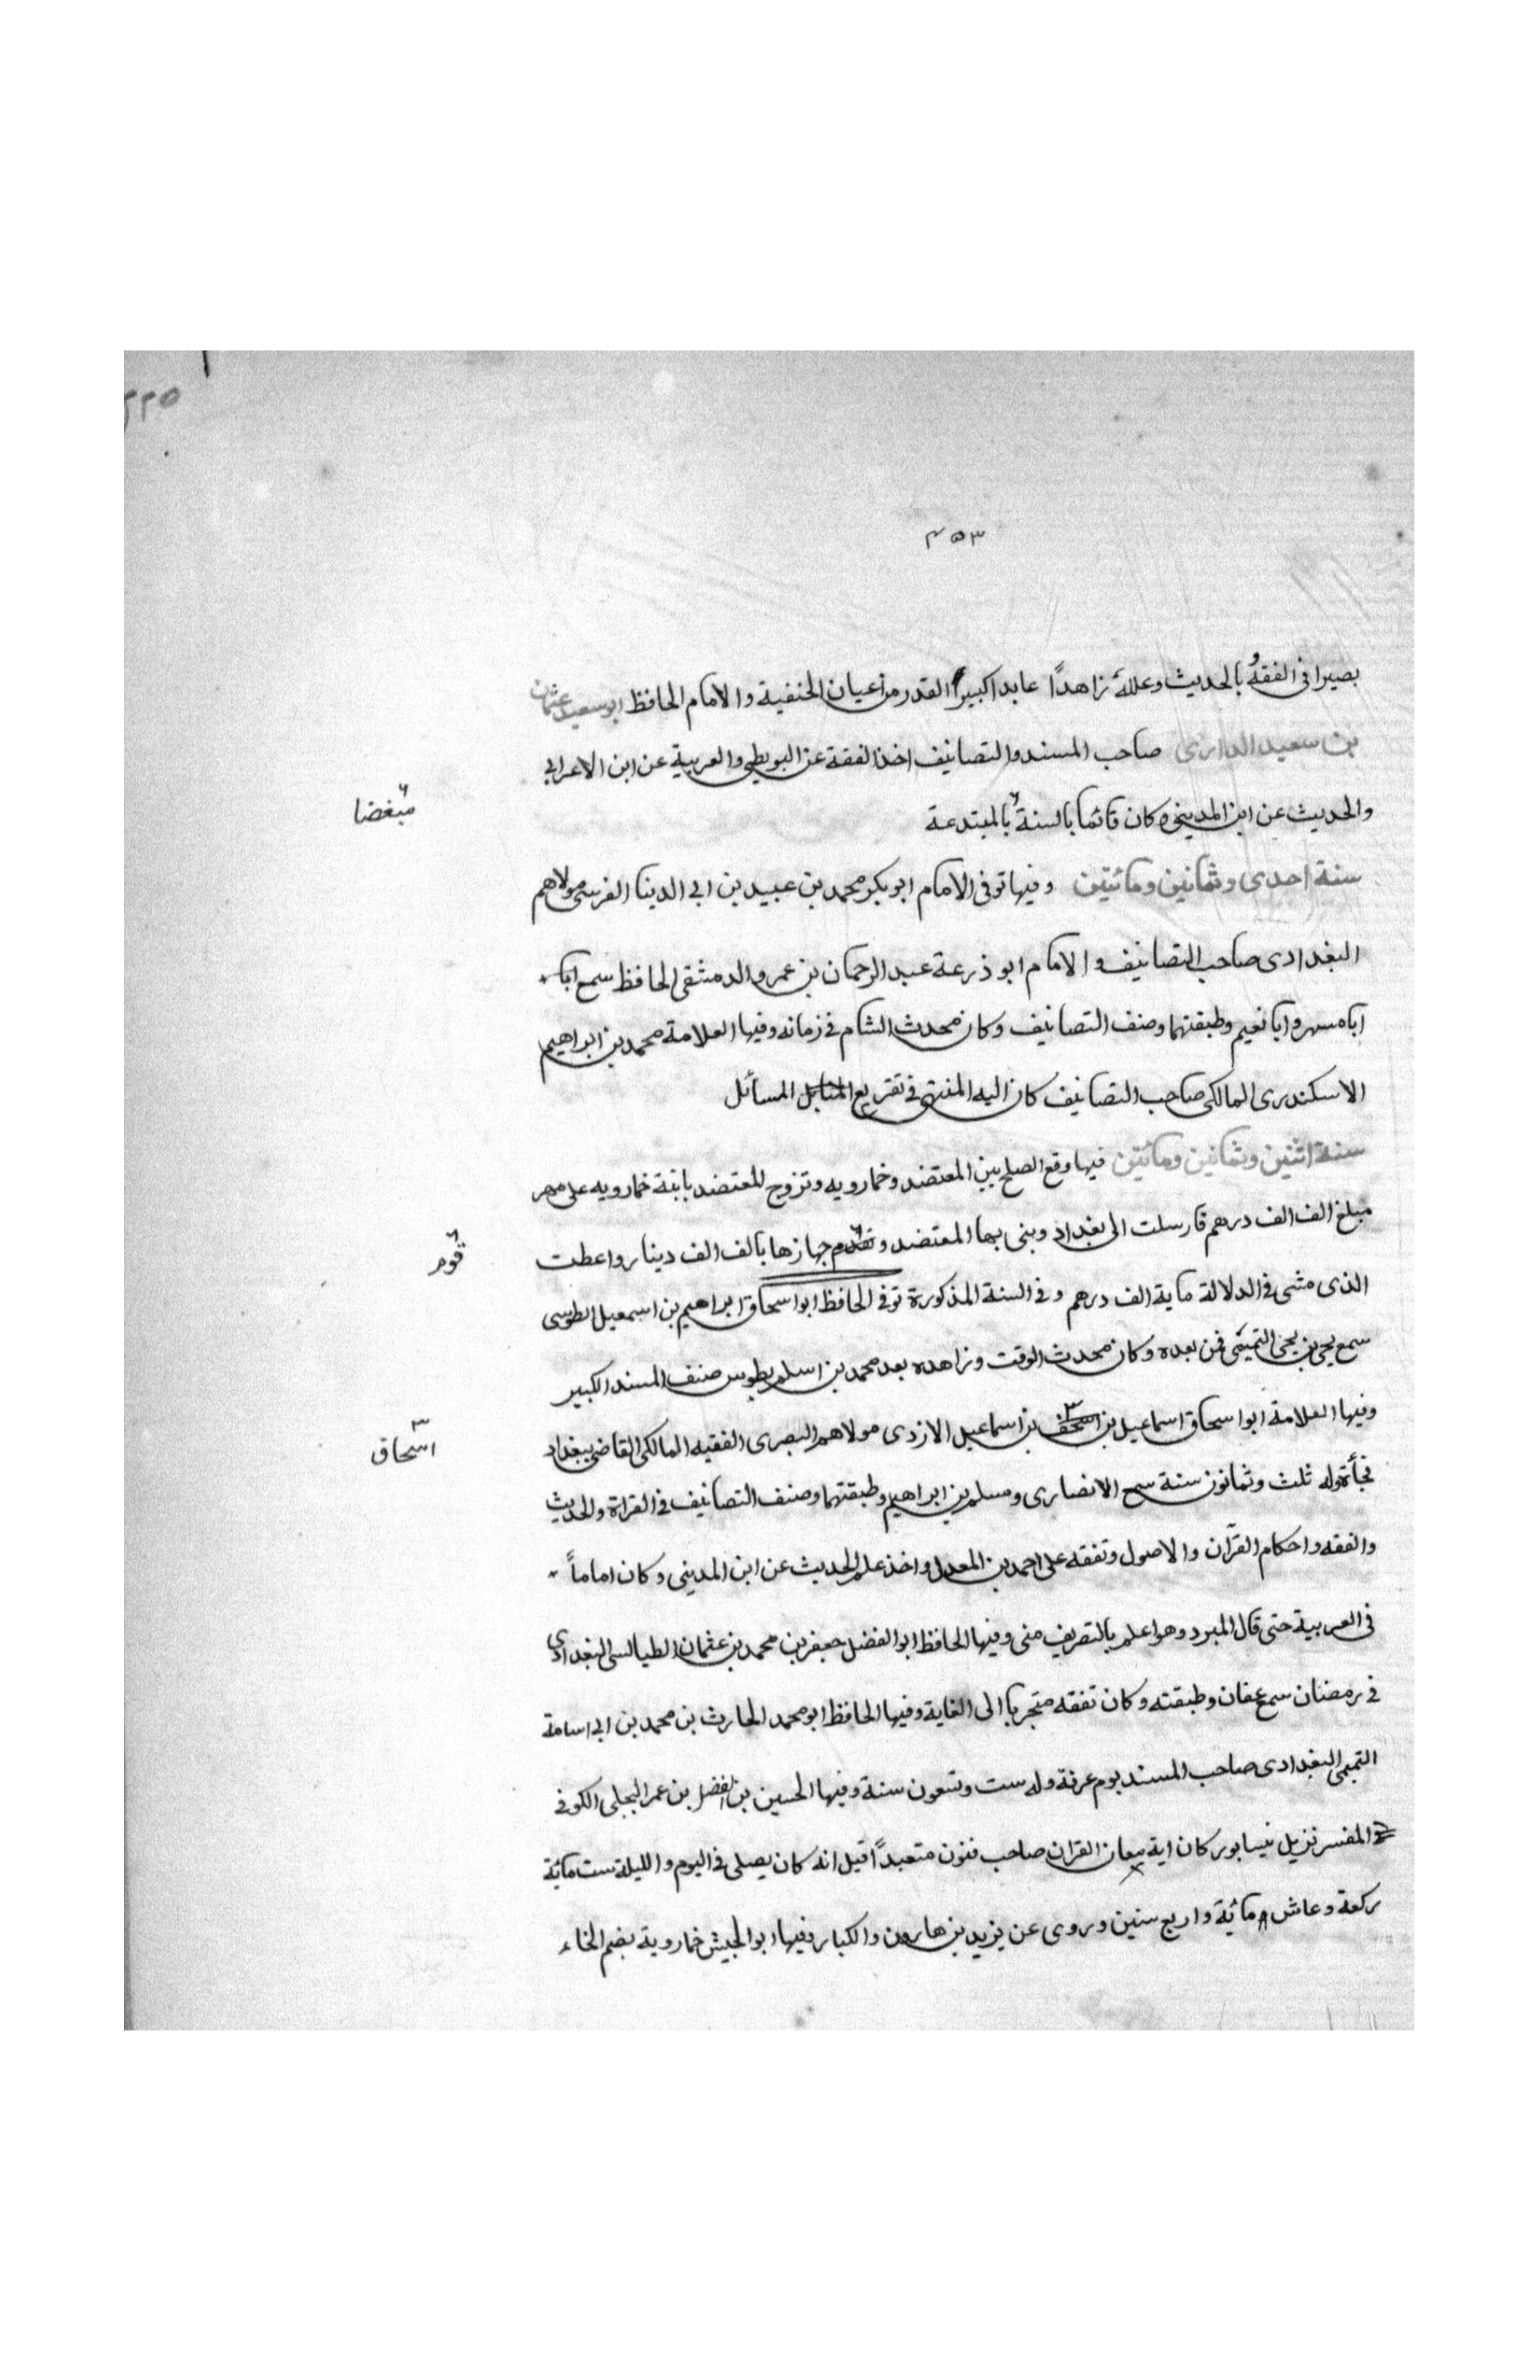 ٢٢٥
٤٥٣
بصيرا فى الفقه و بالحديث وعلله زاهدًا عابدا كبيرا القدر من اعيان الحنفية والامام الحافظ ابو سعيد عثمان
بن سعيد الدارى صاحب المسند والتصانيف اخذ الفقة عن البويطى والعربية عن ابن الاعرابى
والحديث عن ابن المدينى وكان قائما بالسنة بالمبتدعة
مبغضا
سنة احدى وثمانين ومائيتين وفيها توفى الامام ابو بكر محمد بن عبيد بن ابى الدينا القرسى مولاهم
البغدادى صاحب التصانيف والامام ابو ذرعة عبد الرحمان بن عمرو الدمشقى الحافظ سمع ابا
ابا مسهر وابا نعيم وطبقتهما وصنف التصانيف وكان محدث الشام فى زمانه وفيها العلامة محمد بن ابراهيم
الاسكندرى المالكى صاحب التصانيف كان اليه المنتهى فى تفريع المسائل
سنة اثنين وثمانين ومائتين فيها وقع الصلح بين المعتضد وخمارويه وتزوج المعتضد بابنة خمارويه على مهر
مبلغ الف الف درهم فارسلت الى بغداد وبنى بها المعتضد وتقدم جهازها بالف الف دينار واعطت
قوم
الذى مشى فى الدلالة ماية الف درهم وفى السنة المذكورة توفى الحافظ ابو اسحاق ابراهيم بن اسمعيل الطوسى
سمع يحيى بن يحيى التميمى فمن بعده وكان محدث الوقت وزاهده بعد محمد بن اسلم بطوس صنف المسند الكبير
وفيها العلامة ابو اسحاق اسماعيل بن اسحق بن اسماعيل الازدى مولاهم البصرى الفقيه المالكى القاضى ببغداد
اسحاق
فجأة وله ثلث وثمانون سنة سمع الانصارى ومسلم بن ابراهيم وطبقتهما وصنف التصانيف فى القراة والحديث
والفقه واحكام القرآن والاصول وتفقه على احمد بن المعدل واخذ علم الحديث عن ابن المدينى وكان اماماً
فى العربية حتى قال المبرد وهو اعلم بالتصريف منى وفيها الحافظ ابو الفضل جعفر بن محمد بن عثمان الطيالسى البغدادى
فى رمضان سمع عفان وطبقته وكان تفقه متجربا الى الغاية وفيها الحافظ ابو محمد الحارث بن محمد بن ابى اسامة
التميمى البغدادى صاحب المسند يوم عرفة وله ست وتسعون سنة وفيها الحسين بن الفضل بن عمر البجلى الكوفى
المفسر نزيل نيسابور كان اية بمعان القران صاحب فنون متعبدًا قيل انه كان يصلى فى اليوم والليلة ست مائة
ركعة وعاش مائة واربع سنين وروى عن يزيد بن هارون والكبار وفيها ابو الجيش خمارويه بضم الخاء